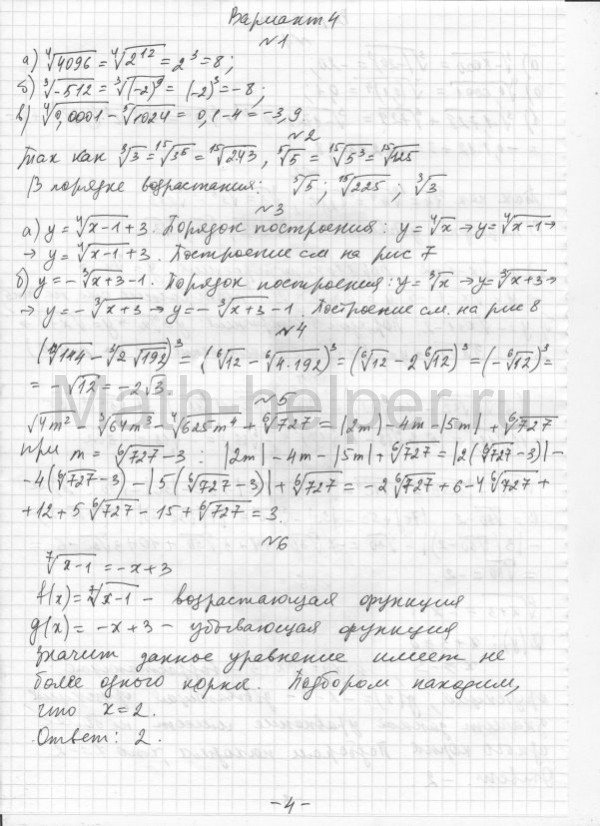 Вариант 4
№1
а) ⁴√4096 = ⁴√2¹² = 2³ = 8;
б) ³√-512 = ³√(-2)⁹ = (-2)³ = -8;
в) ⁴√0,0001 - ⁵√1024 = 0,1-4 = -3,9
№2
Так как ³√3 = ¹⁵√3⁵ = ¹⁵√243, ⁵√5 = ¹⁵√5³ = ¹⁵√125
В порядке возрастания: ⁵√5; ¹⁵√225; ³√3
№3
а) y = ⁴√x-1 + 3. Порядок построения: y = ⁴√x → y = ⁴√x-1 →
→ y = ⁴√x-1 + 3. Построение см на рис 7
б) y = -³√x+3 - 1. Порядок построения: y = ³√x → y = ³√x+3 →
→ y = -³√x+3 → y = -³√x+3 - 1. Построение см. на рис 8
№4
(¹²√144 - ³√2√192)³ = (⁶√12 - ⁶√4·192)³ = (⁶√12 - 2⁶√12)³ = (-⁶√12)³ =
= -√12 = -2√3.
№5
√4m² - ³√64m³ - ⁴√625m⁴ + ⁶√727 = |2m| - 4m - |5m| + ⁶√727
при m = ⁶√727 - 3 : |2m| - 4m - |5m| + ⁶√727 = |2(⁶√727 - 3)| -
- 4(⁶√727 - 3) - |5(⁶√727 - 3)| + ⁶√727 = -2⁶√727 + 6 - 4⁶√727 +
+ 12 + 5⁶√727 - 15 + ⁶√727 = 3.
№6
⁷√x-1 = -x+3
f(x) = ⁷√x-1 - возрастающая функция
g(x) = -x+3 - убывающая функция
значит данное уравнение имеет не
более одного корня. Подбором находим,
что x = 2.
Ответ: 2.
-4-
Math-helper.ru